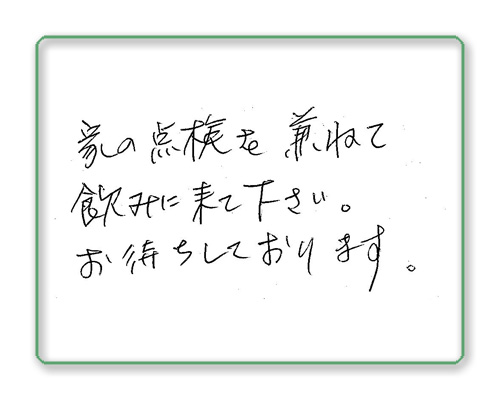 家の点検を兼ねて
飲みに来て下さい。
お待ちしております。